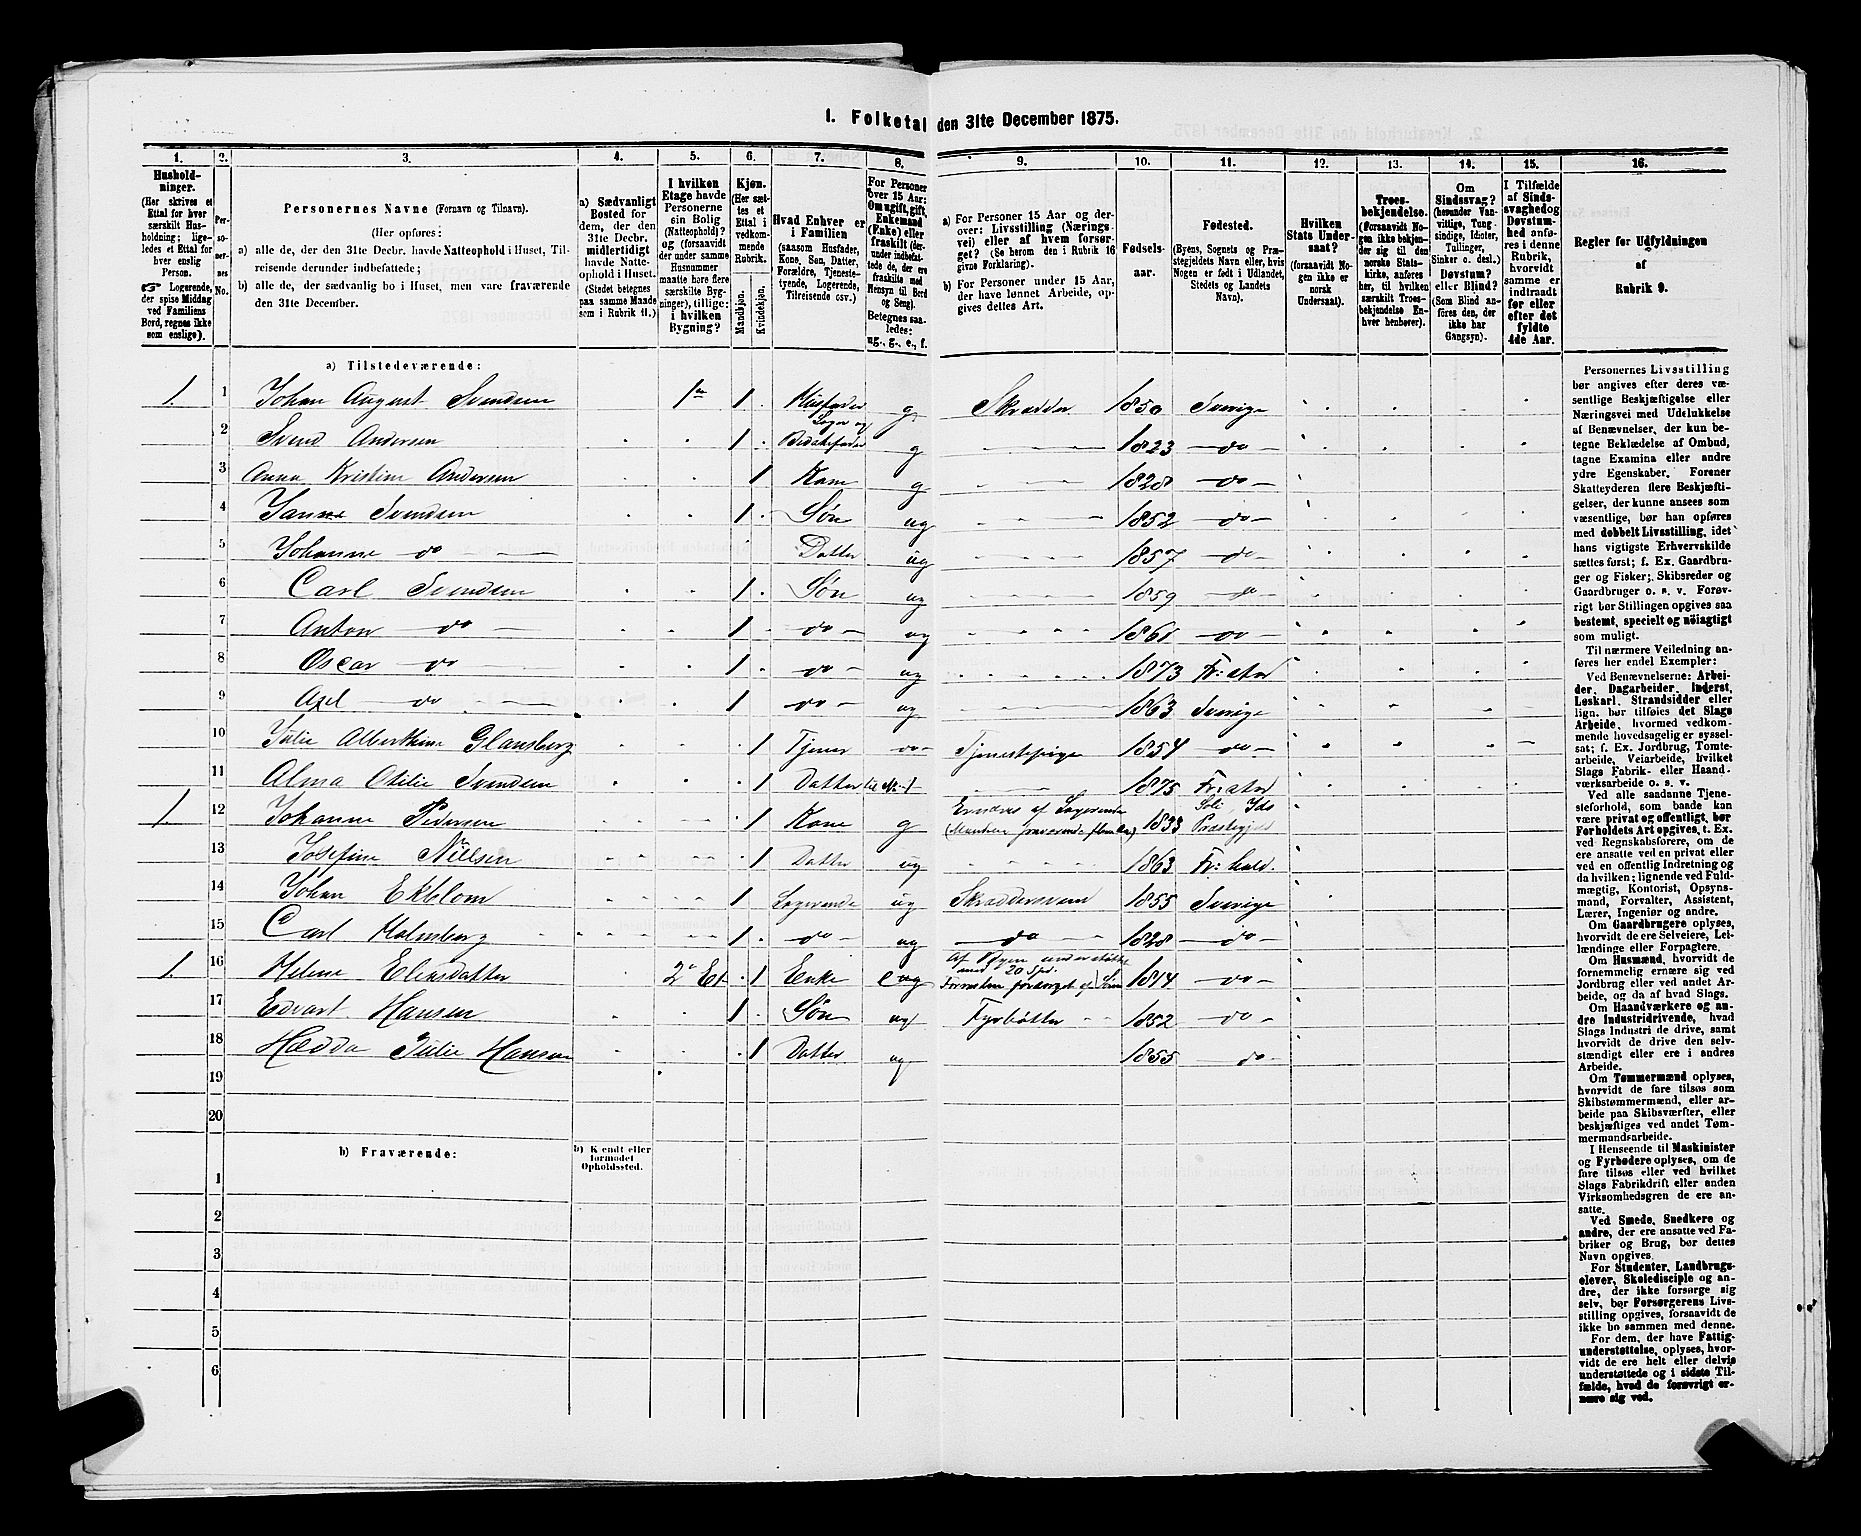 1. Folketal den 31te December 1875.
1. 2. 3. 4. 5. 6. 7. 8. 9. 10. 11. 12. 13. 14. 15. 16.
Hushold-
ninger.
(Her skrives et
Ettal for hver
særskilt Hus-
holdning; lige-
ledes et Ettal for
hver enslig
Person.
☞ Logerende,
der spise Middag
ved Familiens
Bord, regnes ikke
som enslige).
Per-
so-
ner-
nes
No.
Personernes Navne (Fornavn og Tilnavn).
(Her opføres:
a) alle de, der den 31te Decbr. havde Natteophold i Huset, Til-
reisende derunder indbefattede;
b) alle de, der sædvanlig bo i Huset, men vare fraværende
den 31te December.
a) Sædvanligt
Bosted for
dem, der den
31te Decbr.
midlertidigt
havde Natte-
ophold i Huset.
(Stedet betegnes
paa samme Maade
som i Rubrik 11.)
I hvilken
Etage havde
Personerne
sin Bolig
(Natteophold)?
og (forsaavidt
der under samme
Husnummer
maatte høre flere
særskilte Byg-
ninger), tillige:
i hvilken
Bygning?
Kjøn.
(Her sæt-
tes et
Ettal i
vedkom-
mende
Rubrik.
Mandkjøn.
Kvindekjøn.
Hvad Enhver er
i Familien
(saasom Husfader,
Kone, Søn, Datter,
Forældre, Tjeneste-
tyende, Logerende,
Tilreisende osv.)
For Personer
over 15 Aar:
Om ugift, gift,
Enkemand
(Enke) eller
fraskilt (der-
under indbefat-
tede de, der ere
fraskilte med
Hensyn til Bord
og Seng).
Betegnes saa-
ledes:
ug., g., e., f.
a) For Personer 15 Aar og der-
over: Livsstilling (Nærings-
vei) eller af hvem forsør-
get? (Se herom den i Rubrik 16
givne Forklaring).
b) For Personer under 15 Aar,
der have lønnet Arbeide, op-
gives dettes Art.
Fødsels-
aar.
Fødested.
(Byens, Sognets og Præ-
stegjeldets Navn eller, hvis
Nogen er født i Udlandet,
Stedets og Landets
Navn).
Hvilken
Stats Under-
saat?
(forsaavidt No-
gen ikke er
norsk
Undersaat).
Troes-
bekjendelse.
(Forsaavidt No-
gen ikke bekjen-
der sig til den
norske Stats-
kirke, anføres
her, til hvilken
særskilt Troes-
bekjendelse En-
hver henhører).
Om
Sindssvag?
(herunder Van-
vittige, Tung-
sindige, Idioter,
Tullinger,
Sinker o. desl.)
Døvstum?
eller Blind?
(Som Blind an-
føres den, der
ikke har
Gangsyn).
I Tilfælde
af Sinds-
svaghed og
Døvstum-
hed anfø-
res i denne
Rubrik,
hvorvidt
samme er
indtraadt
før eller
efter det
fyldte
4de Aar.
Regler for Udfyldningen
af
Rubrik 9.
a) Tilstedeværende:
1. 1 Johan August Svendsen 1ste 1 Husfader g Skrædder 1850 Sverige
2 Svend Andersen 1 Loger og Bedstefader g 1823 do
3 Anna Kristine Andersen 1 Kone g 1828 do
4 Janne Svendsen 1 Søn ug 1852 do
5 Johanne do Datter ug 1857 do
6 Carl Svendsen 1 Søn ug 1859 do
7 Anton do 1 do ug 1861 do
8 Oscar do 1 do ug 1873 Fr: stad
9 Axel do 1 do ug 1863 Sverige
10 Julie Alberthine Glansberg 1 Tjener do Tjenestepige 1854 do
11 Alma Otilie Svendsen 1 Datter til No 1 1875 Fr: stad
1. 12 Johanne Pedersen 1 Kone g Ernæres af Logerende (Manden fraværende) 1833 Ids Præstegjeld
13 Josefine Nielsen 1 Datter ug 1863 Fr: hald.
14 Johan Ekblom 1 Logerende ug Skræddersvend 1855 Sverige
15 Carl Holmberg 1 do ug do 1828 do
1. 16 Helene Eliasdatter 2 Et 1 Enke e Af Byen understøttet med 20 Spd. Forresten forsørget af Søn 1814 do
17 Edvart Hansen 1 Søn ug Fyrbøtter 1852 do
18 Hædda Julie Hansen 1 Datter ug 1855 do
19
20
b) Fraværende:
b) Kjendt eller
formodet
Opholdssted.
1
2
3
4
5
6
Personernes Livsstilling
bør angives efter deres væ-
sentlige Beskjæftigelse eller
Næringsvei med Udelukkelse
af Benævnelser, der kun be-
tegne Beklædelse af Ombud,
tagne Examina eller andre
ydre Egenskaber. Forener
Skatteyderen flere Beskjæfti-
gelser, der kunne ansees som
væsentlige, bør han opføres
med dobbelt Livsstilling, idet
hans vigtigste Erhvervskilde
sættes først; f. Ex. Gaardbru-
ger og Fisker; Skibsreder og
Gaardbruger o. s. v. Forøv-
rigt bør Stillingen opgives saa
bestemt, specielt og nøiagtigt
som muligt.
Til nærmere Veiledning an-
føres her endel Exempler:
Ved Benævnelserne: Arbei-
der, Dagarbeider, Inderst,
Løskarl, Strandsidder eller
lign. bør tilføies det Slags
Arbeide, hvormed vedkom-
mende hovedsagelig er syssel-
sat; f. Ex. Jordbrug, Tomte-
arbeide, Veiarbeide, hvilket
Slags Fabrik- eller Haand-
værksarbeide o. s. v.
Ved alle saadanne Tjene-
steforhold, som baade kan
være privat og offentligt, bør
Forholdets Art opgives, t. Ex.
ved Regnskabsførere, om de
ere ansatte ved en privat eller
ved en offentlig Indretning og
da hvilken; lignende ved Fuld-
mægtig, Kontorist, Opsyns-
mand, Forvalter, Assistent,
Lærer, Ingeniør og andre.
Om Gaardbrugere oplyses,
hvorvidt de ere Selveiere, Lei-
lændinge eller Forpagtere.
Om Husmænd, hvorvidt de
fornemmelig ernære sig ved
Jordbrug eller ved andet Ar-
beide, og da af hvad Slags.
Om Haandværkere og an-
dre Industridrivende, hvad
Slags Industri de drive, samt
hvorvidt de drive den selv-
stændigt eller ere i andres
Arbeide.
Om Tømmermænd oplyses,
hvorvidt de fare tilsøs som
Skibstømmermænd, eller ar-
beide paa Skibsværfter, eller
beskjæftiges ved andet Tøm-
mermandsarbeide.
I Henseende til Maskinister
og Fyrbødere oplyses, om de
fare tilsøs eller ved hvilket
Slags Fabrikdrift eller anden
Virksomhedsgren de ere an-
satte.
Ved Smede, Snedkere og
andre, der ere ansatte ved Fa-
briker og Brug, bør dettes
Navn opgives.
For Studenter, Landbrugs-
elever, Skoledisciple og an-
dre, der ikke forsørge sig
selv, bør Forsørgerens Livs-
stilling opgives, forsaavidt de
ikke bo sammen med denne.
For dem, der have Fattig-
understøttelse, oplyses, hvor-
vidt de ere helt eller delvis
understøttede og i sidste Til-
fælde, hvad de forøvrigt er-
nære sig ved.